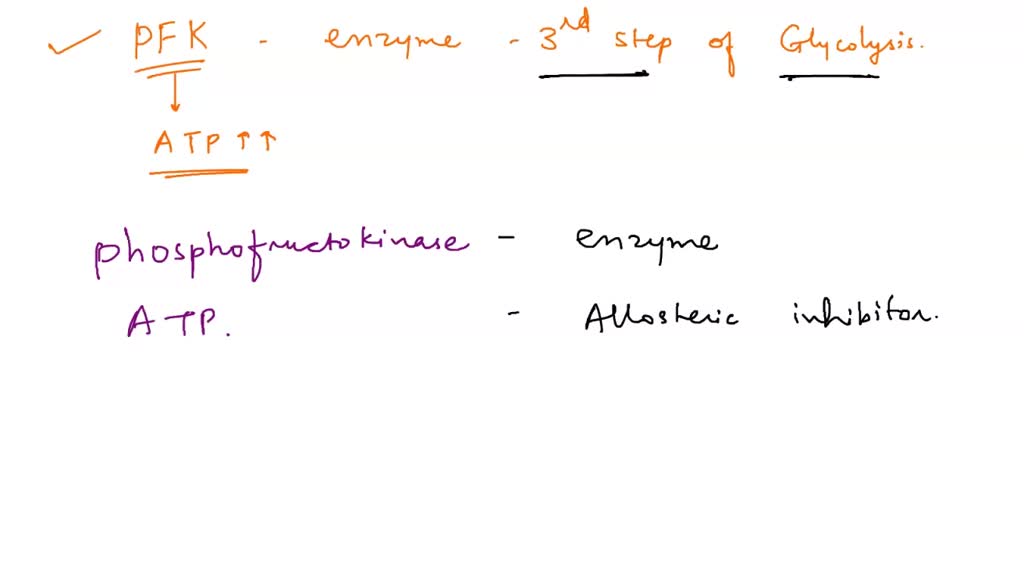 ✓ PFK - enzyme - 3rd step of Glycolysis.
↓
ATP ↑↑
phosphofructokinase - enzyme
ATP. - Allosteric inhibitor.